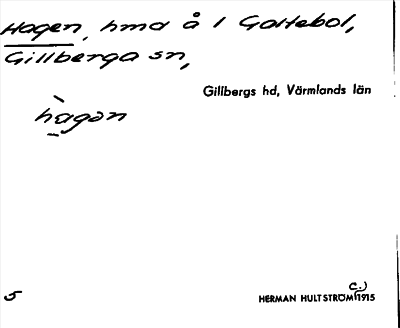 Hagen, hmd å 1 Gottebol,
Gillberga sn,
Gillbergs hd, Värmlands län
hagən
5
HERMAN HULTSTRÖM C.) 1915